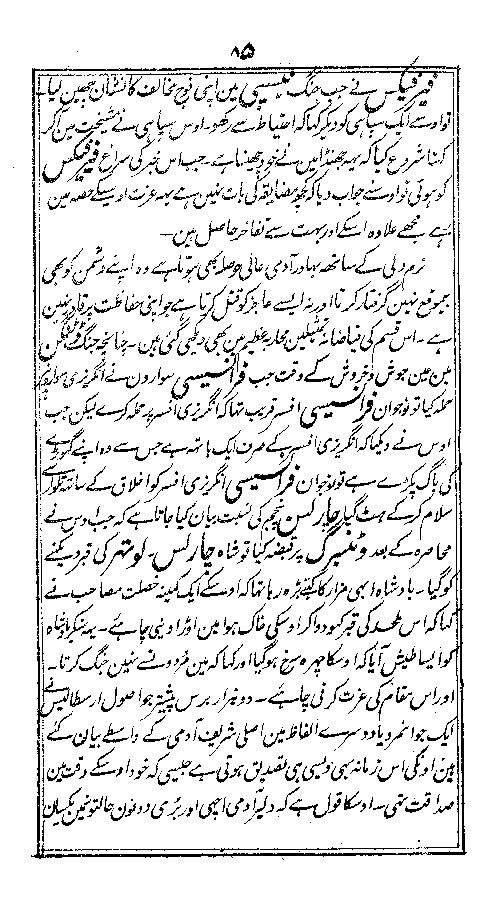 ۸۵
فیرفیکس نے جب جنگ نیسبی مین اپنی فوج مخالف کا نشان چھین لیا
تو اوسے ایک سپاہی کو دیکر کہا کہ احتیاط سے رکھو۔ اوس سپاہی نے شیخت مین آکر
کہنا شروع کیا کہ یہہ جھنڈا مین نے خود چھینا ہے۔ جب اس خبر کی سراغ فیرفیکس
کو ہوئی تو اوسنے جواب دیا کہ کچھ مضایقہ کی بات نہین ہے یہہ عزت اوسیکے حصہ مین
رہے مجھے علاوہ اسکے اور بہت سے تفاخر حاصل ہین۔
نرم دلی کے ساتھہ بہادر آدمی عالی حوصلہ بھی ہوتا ہے وہ اپنے دشمن کو بھی
بیموقع نہین گرفتار کرتا اور نہ ایسے عاجز کو قتل کرتا ہے جو اپنی حفاظت پر قادر نہین
ہے۔ اس قسم کی فیاضانہ تمثیلین محاربہ عظیم مین بھی دیکھی گئی ہین۔ چنانچہ جنگ
مین عین جوش و خروش کے وقت جب فرانسیسی سوارون نے انگریزی سوارونپر
حملہ کیا تو نوجوان فرانسیسی افسر قریب تہا کہ انگریزی افسر پر حملہ کرے لیکن جب
اوس نے دیکھا کہ انگریزی افسر کے صرف ایک ہاتھہ ہے جس سے وہ اپنے گھوڑے
کی باگ پکڑے ہے تو نوجوان فرانسیسی انگریزی افسر کو اخلاق کے ساتھہ تلوار سے
سلام کر کے ہٹ گیا۔ چارلس پنجم کی نسبت بیان کیا جاتا ہے کہ جب اوس نے
محاصرہ کے بعد وٹنبرگ پر قبضہ کیا تو شاہ چارلس۔ لوتھر کی قبر دیکھنے
کو گیا۔ بادشاہ ابھی مزار کا کتبہ پڑہ رہا تہا کہ اوسکے ایک کمینہ خصلت مصاحب نے
کہا کہ اس ملحد کی قبر کھودوا کر اوسکی خاک ہوا مین اوڑا دینی چاہئے۔ یہہ سنکر بادشاہ
کو ایسا طیش آیا کہ اوسکا چہرہ سرخ ہو گیا اور کہا کہ مین مردونسے نہین جنگ کرتا۔
اور اس مقام کی عزت کرنی چاہئے۔ دو ہزار برس پیشتر جو اصول ارسطاطالیس نے
ایک جوانمرد یا دوسرے الفاظ مین اصلی شریف آدمی کے واسطے بیان کے
ہین اونکی اس زمانہ بھی ویسی ہی تصدیق ہوتی ہے جیسی کہ خود اوسکے وقت مین
صداقت تہی۔ اوسکا قول ہے کہ دلیر آدمی اچھی اور بری دونون حالتونمین یکسان